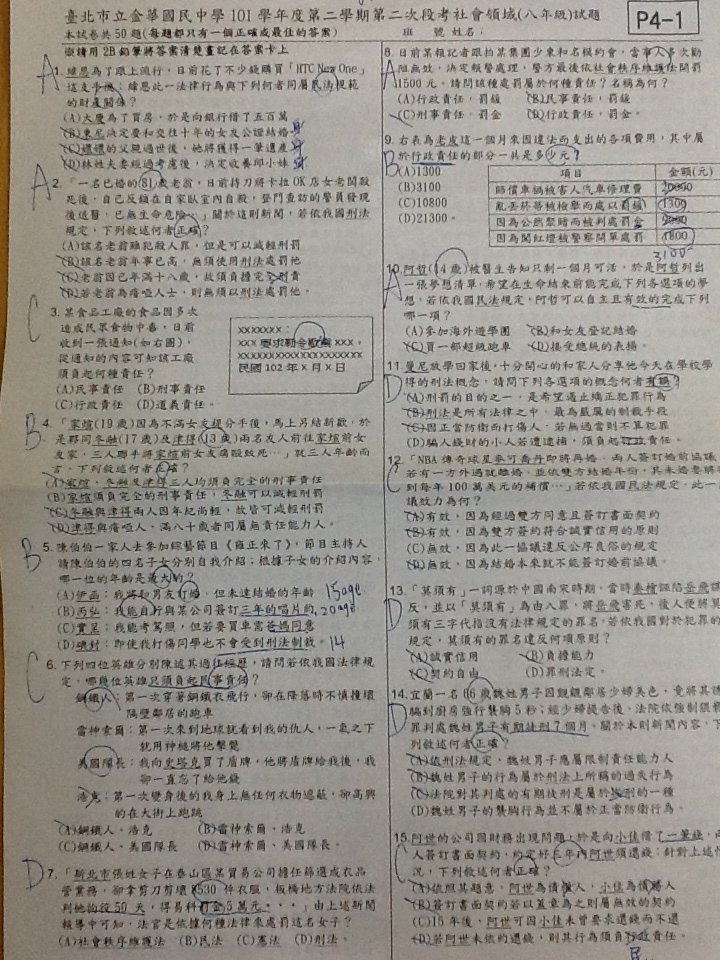 臺北市立金華國民中學101學年度第二學期第二次段考社會領域(八年級)試題
P4-1
本試卷共50題(每題都只有一個正確或最佳的答案)
班 號 姓名:
※請用2B鉛筆將答案清楚畫記在答案卡上
A
1. 緯恩為了跟上流行,日前花了不少錢購買「HTC New One」
這支手機;緯恩此一法律行為與下列何者同屬民法規範
的財產關係?
(A)大慶為了買房,於是向銀行借了五百萬
(B)東尼決定要和交往十年的女友公證結婚
(C)嬛嬛的父親過世後,她將獲得一筆遺產
(D)林姓夫妻經過考慮後,決定收養邱小妹
A
2. 「一名已婚的81歲老翁,日前持刀將卡拉OK店女老闆殺
死後,自己反鎖在自家臥室內自殺,登門查訪的警員發現
後送醫,已無生命危險。」關於這則新聞,若依我國刑法
規定,下列敘述何者正確?
(A)該名老翁雖犯殺人罪,但是可以減輕刑罰
(B)該名老翁年事已高,無須使用刑法處罰他
(C)老翁因已年滿十八歲,故須負擔完全刑責
(D)若老翁為瘖啞人士,則無須以刑法處罰他。
C
3. 某食品工廠的食品因多次
造成民眾食物中毒,日前
收到一張通知(如右圖),
從通知的內容可知該工廠
須負起何種責任?
(A)民事責任 (B)刑事責任
(C)行政責任 (D)道義責任。
XXXXXXX:
XXX 要求勒令歇業 XXX,
XXXXXXXXXXXXXXXXXX
民國 102 年 X 月 X 日
B
4. 「家煊(19歲)因為不滿女友提分手後,馬上另結新歡,於
是夥同冬融(17歲)及津得(13歲)兩名友人前往家煊前女
友家,三人聯手將家煊前女友痛毆致死…」就三人年齡而
言,下列敘述何者正確?
(A)家煊、冬融及津得三人均須負完全的刑事責任
(B)家煊須負完全的刑事責任,冬融可以減輕刑罰
(C)冬融與津得兩人因年紀尚輕,故皆可減輕刑罰
(D)津得與瘖啞人、滿八十歲者同屬無責任能力人。
B
5. 陳伯伯一家人去參加綜藝節目《雍正來了》,節目主持人
請陳伯伯的四名子女分別自我介紹;根據子女的介紹內容,
哪一位的年齡是最大的?
(A)伊函:我將和男友訂婚,但未達結婚的年齡 15age
(B)丙弘:我能自行與某公司簽訂三年的唱片約, 20age
(C)實茗:我能考駕照,但若要買車需爸媽同意
(D)魂封:即使我打傷同學也不會受到刑法制裁。 14
C
6. 下列四位英雄分別陳述其過往經歷,請問若依我國法律規
定,哪幾位英雄只須負起民事責任?
鋼鐵人:第一次穿著鋼鐵衣飛行,卻在降落時不慎撞壞
隔壁鄰居的跑車
雷神索爾:第一次來到地球就看到我的仇人,一氣之下
就用神槌將他擊斃
美國隊長:我向史塔克買了盾牌,他將盾牌給我後,我
卻一直忘了給他錢
浩克:第一次變身後的我身上無任何衣物遮蔽,卻高興
的在大街上跑跳
(A)鋼鐵人、浩克 (B)雷神索爾、浩克
(C)鋼鐵人、美國隊長 (D)雷神索爾、美國隊長。
D
7. 「新北市張姓女子在泰山區某貿易公司擔任篩選成衣品
管業務,卻拿剪刀剪壞8530件衣服,板橋地方法院依法
判他拘役50天,得易科罰金5萬元‧‧‧」由上述新聞
報導中可知,法官是依據何種法律來處罰這名女子?
(A)社會秩序維護法 (B)民法 (C)憲法 (D)刑法。
8. 日前某報記者跟拍某集團少東和名模約會,當事人多次勸
阻無效,決定報警處理,警方最後依社會秩序維護法開罰
1500元。請問該種處罰屬於何種責任?名稱為何?
(A)行政責任,罰鍰 (B)民事責任,罰鍰
(C)刑事責任,罰金 (D)行政責任,罰金。
B
9. 右表為老皮這一個月來因違法而支出的各項費用,其中屬
於行政責任的部分一共是多少元?
(A)1300
(B)3100
(C)10800
(D)21300。
項目 金額(元)
賠償車禍被害人汽車修理費 20000
亂丟菸蒂被檢舉而處以罰鍰 1300
因為公然聚賭而被判處罰金 9000
因為闖紅燈被警察開單處罰 1800
3100
A
10. 阿哲(14歲)被醫生告知只剩一個月可活,於是阿哲列出
一張夢想清單,希望在生命結束前能完成下列各選項的夢
想,若依我國民法規定,阿哲可以自主且有效的完成下列
哪一項?
(A)參加海外遊學團 (B)和女友登記結婚
(C)買一部超級跑車 (D)接受總統的表揚。
11. 曼尼放學回家後,十分開心的和家人分享他今天在學校學
得的刑法概念,請問下列各選項的概念何者有誤?
(A)刑罰的目的之一,是希望遏止矯正犯罪行為
(B)刑法是所有法律之中,最為嚴厲的制裁手段
(C)因正當防衛而打傷人,若無過當則不算犯罪
(D)騙人錢財的小人若遭逮捕,須負起行政責任。
C
12. 「NBA傳奇球星麥可喬丹即將再婚,兩人簽訂婚前協議
若有一方外遇就離婚,並依雙方結婚年份,其未婚妻將
到每年100萬美元的補償…」若依我國民法規定,此一
議效力為何?
(A)有效,因為經過雙方同意且簽訂書面契約
(B)有效,因為雙方簽約符合誠實信用的原則
(C)無效,因為此一協議違反公序良俗的規定
(D)無效,因為結婚本來就不能簽訂婚前協議。
D
13. 「莫須有」一詞源於中國南宋時期,當時秦檜誣陷岳飛謀
反,並以「莫須有」為由入罪,將岳飛害死,後人便將莫
須有三字代指沒有法律規定的罪名。若依我國對於犯罪的
規定,莫須有的罪名違反何項原則?
(A)誠實信用 (B)負擔能力
(C)契約自由 (D)罪刑法定。
D
14. 宜蘭一名66歲魏姓男子因覬覦鄰居少婦美色,竟將其誘
騙到廚房強行襲胸5秒;經少婦提告後,法院依強制猥褻
罪判處魏姓男子有期徒刑7個月。關於本則新聞內容,下
列敘述何者正確?
(A)依刑法規定,魏姓男子應屬限制責任能力人
(B)魏姓男子的行為屬於刑法上所稱的過失行為
(C)法院對其判處的有期徒刑是屬於從刑的一種
(D)魏姓男子的襲胸行為並不屬於正當防衛行為。
C
15. 阿世的公司因財務出現問題,於是向小佳借了一筆錢,兩
人簽訂書面契約,約定好三年內阿世須還錢;針對上述情
況,下列敘述何者正確?
(A)依照其題意,阿世為債權人,小佳為債務人
(B)簽訂書面契約若以蓋章為之則屬無效的契約
(C)15年後,阿世可因小佳未曾要求還錢而不還
(D)若阿世未依約還錢,則其行為須負行政責任。
民